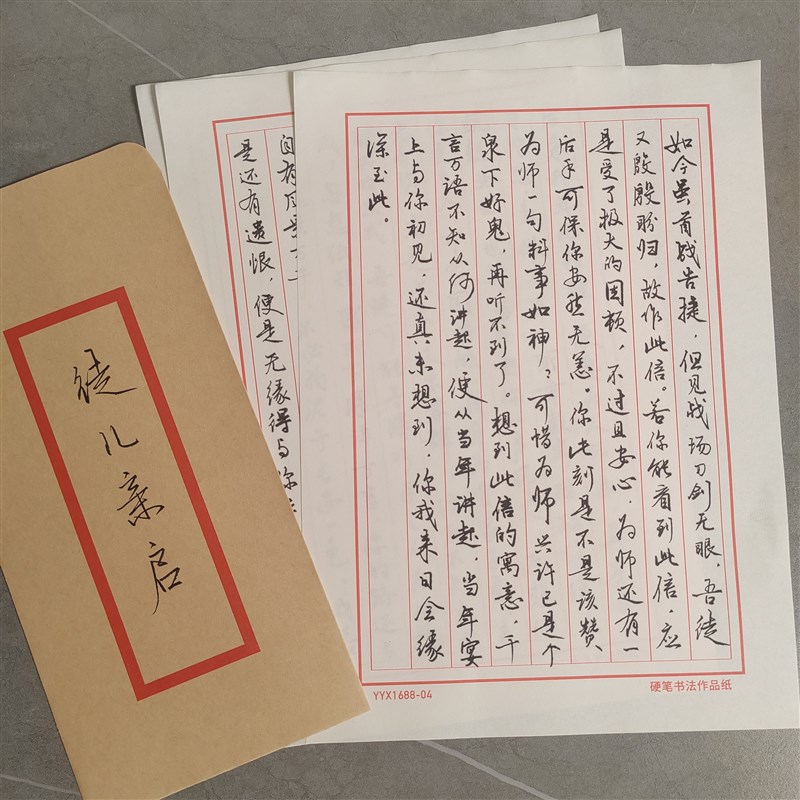 徒儿亲启
如今虽首战告捷，但见战场刀剑无眼，吾徒
又殷殷盼归，故作此信。若你能看到此信，应
是受了极大的困顿，不过且安心，为师还有一
后手可保你安然无恙。你此刻是不是该赞
为师一句料事如神？可惜为师兴许已是个
泉下好鬼，再听不到了。想到此信的寓意，千
言万语不知从何讲起，便从当年讲起，当年宴
上与你初见，还真未想到，你我来日会缘
深至此。
YYX1688-04
硬笔书法作品纸
是还有遗恨，便是无缘得与你